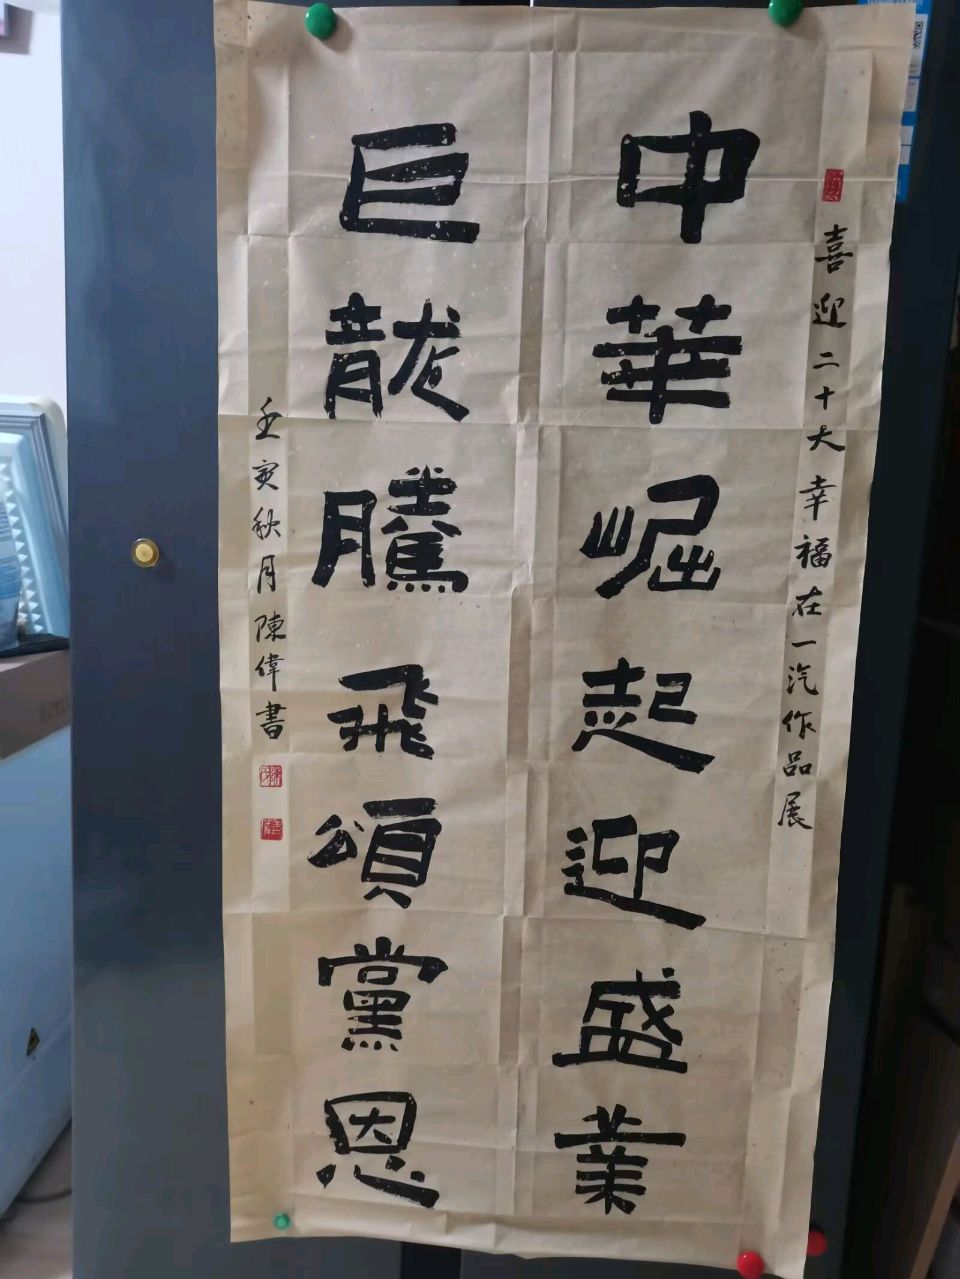 喜迎二十大幸福在一汽作品展
中華崛起迎盛業
巨龍騰飛頌黨恩
壬寅秋月陳偉書